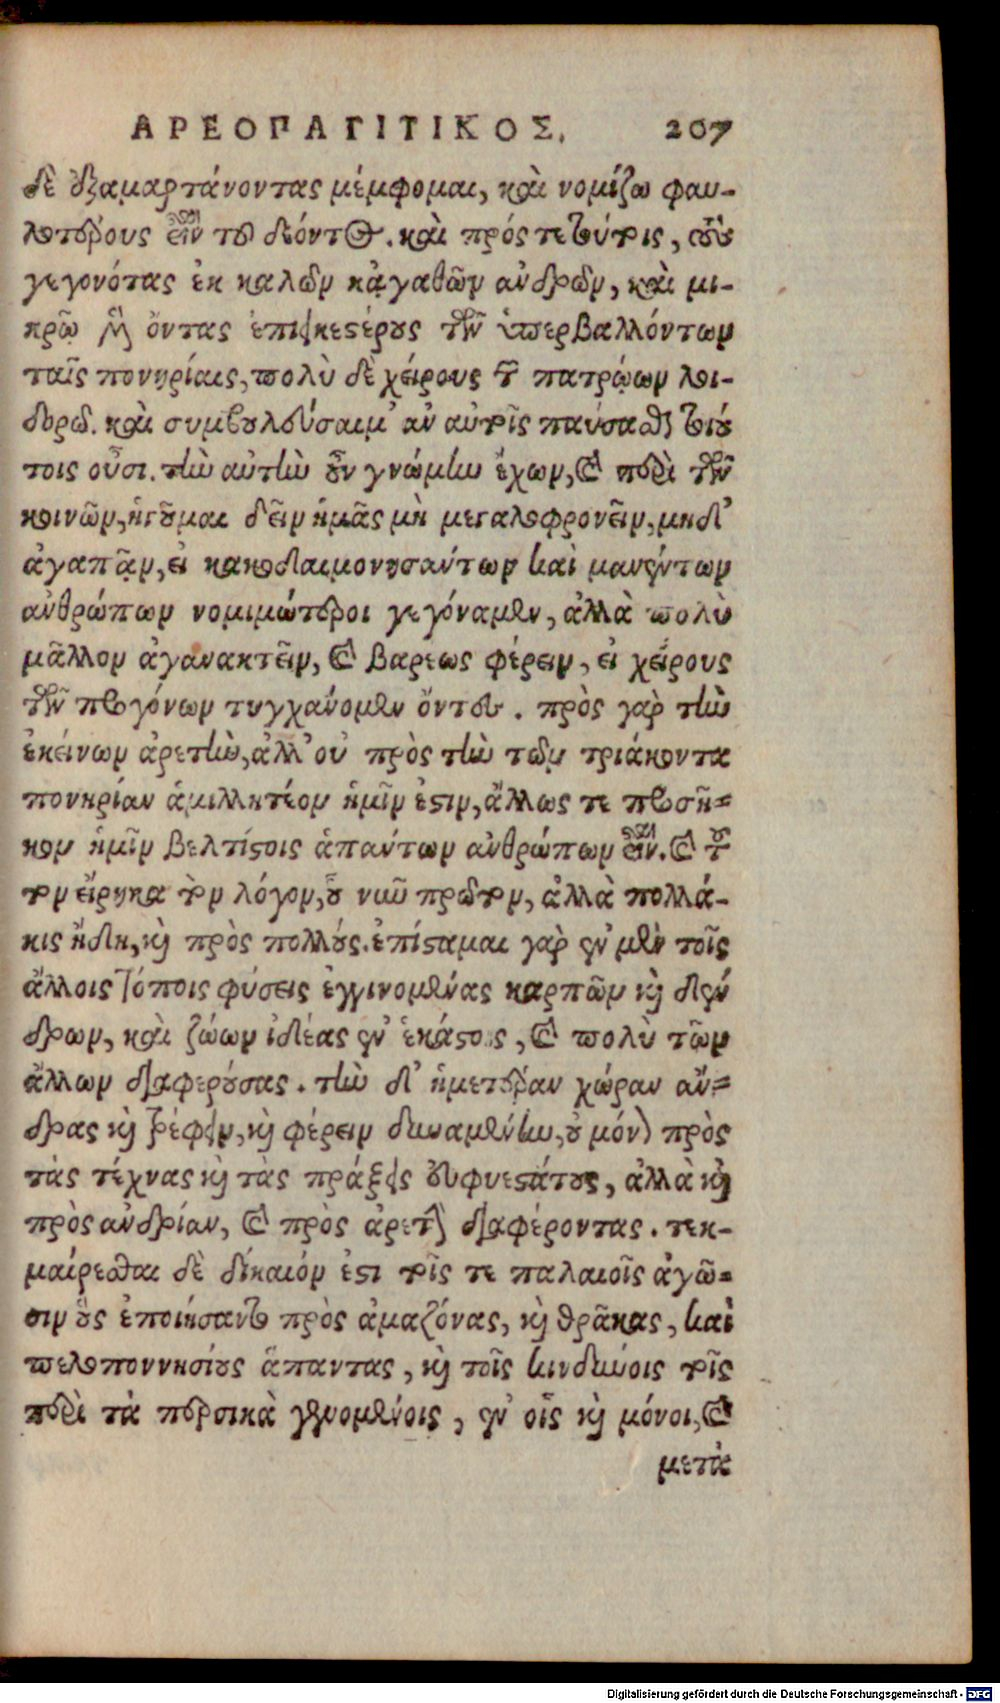 ΑΡΕΟΠΑΓΙΤΙΚΟΣ. 207
δὲ ἐξαμαρτάνοντας μέμφομαι, καὶ νομίζω φαυ-
λοτέρους εἶναι τοῦ δέοντος. καὶ πρός τε τούτοις, τοὺς
γεγονότας ἐκ καλῶν κἀγαθῶν ἀνδρῶν, καὶ μι-
κρῷ μὲν ὄντας ἐπιεικεστέρους τῶν ὑπερβαλλόντων
ταῖς πονηρίαις, πολὺ δὲ χείρους τῶν πατρῴων λοι-
δορῶ. καὶ συμβουλεύσαιμ' ἂν αὐτοῖς παύσασθαι τοιού
τοις οὖσι. τὴν αὐτὴν οὖν γνώμην ἔχων, καὶ περὶ τῶν
κοινῶν, ἡγοῦμαι δεῖν ἡμᾶς μὴ μεγαλοφρονεῖν, μηδ'
ἀγαπᾷν, εἰ κακοδαιμονησάντων καὶ μανέντων
ἀνθρώπων νομιμώτεροι γεγόναμεν, ἀλλὰ πολὺ
μᾶλλον ἀγανακτεῖν, καὶ βαρέως φέρειν, εἰ χείρους
τῶν προγόνων τυγχάνομεν ὄντες. πρὸς γὰρ τὴν
ἐκείνων ἀρετὴν, ἀλλ' οὐ πρὸς τὴν τῶν τριάκοντα
πονηρίαν ἁμιλλητέον ἡμῖν ἐστιν, ἄλλως τε προσῆ-
κον ἡμῖν βελτίστοις ἁπάντων ἀνθρώπων εἶναι. καὶ τοῦ
τον εἴρηκα τὸν λόγον, οὐ νῦν πρῶτον, ἀλλὰ πολλά-
κις ἤδη, καὶ πρὸς πολλούς. ἐπίσταμαι γὰρ ἐν μὲν τοῖς
ἄλλοις τόποις φύσεις ἐγγινομένας καρπῶν καὶ δέν
δρων, καὶ ζώων ἰδέας ἐν ἑκάστοις, καὶ πολὺ τῶν
ἄλλων διαφερούσας. τὴν δ' ἡμετέραν χώραν ἄν-
δρας καὶ τρέφειν, καὶ φέρειν δυναμένην, οὐ μόνον πρὸς
τὰς τέχνας καὶ τὰς πράξεις εὐφυεστάτους, ἀλλὰ καὶ
πρὸς ἀνδρίαν, καὶ πρὸς ἀρετὴν διαφέροντας. τεκ-
μαίρεσθαι δὲ δίκαιόν ἐστι τοῖς τε παλαιοῖς ἀγῶ-
σιν οὓς ἐποιήσαντο πρὸς ἀμαζόνας, καὶ θρᾶκας, καὶ
πελοποννησίους ἅπαντας, καὶ τοῖς κινδύνοις τοῖς
περὶ τὰ περσικὰ γενομένοις, ἐν οἷς καὶ μόνοι, καὶ
μετὰ
Digitalisierung gefördert durch die Deutsche Forschungsgemeinschaft - DFG